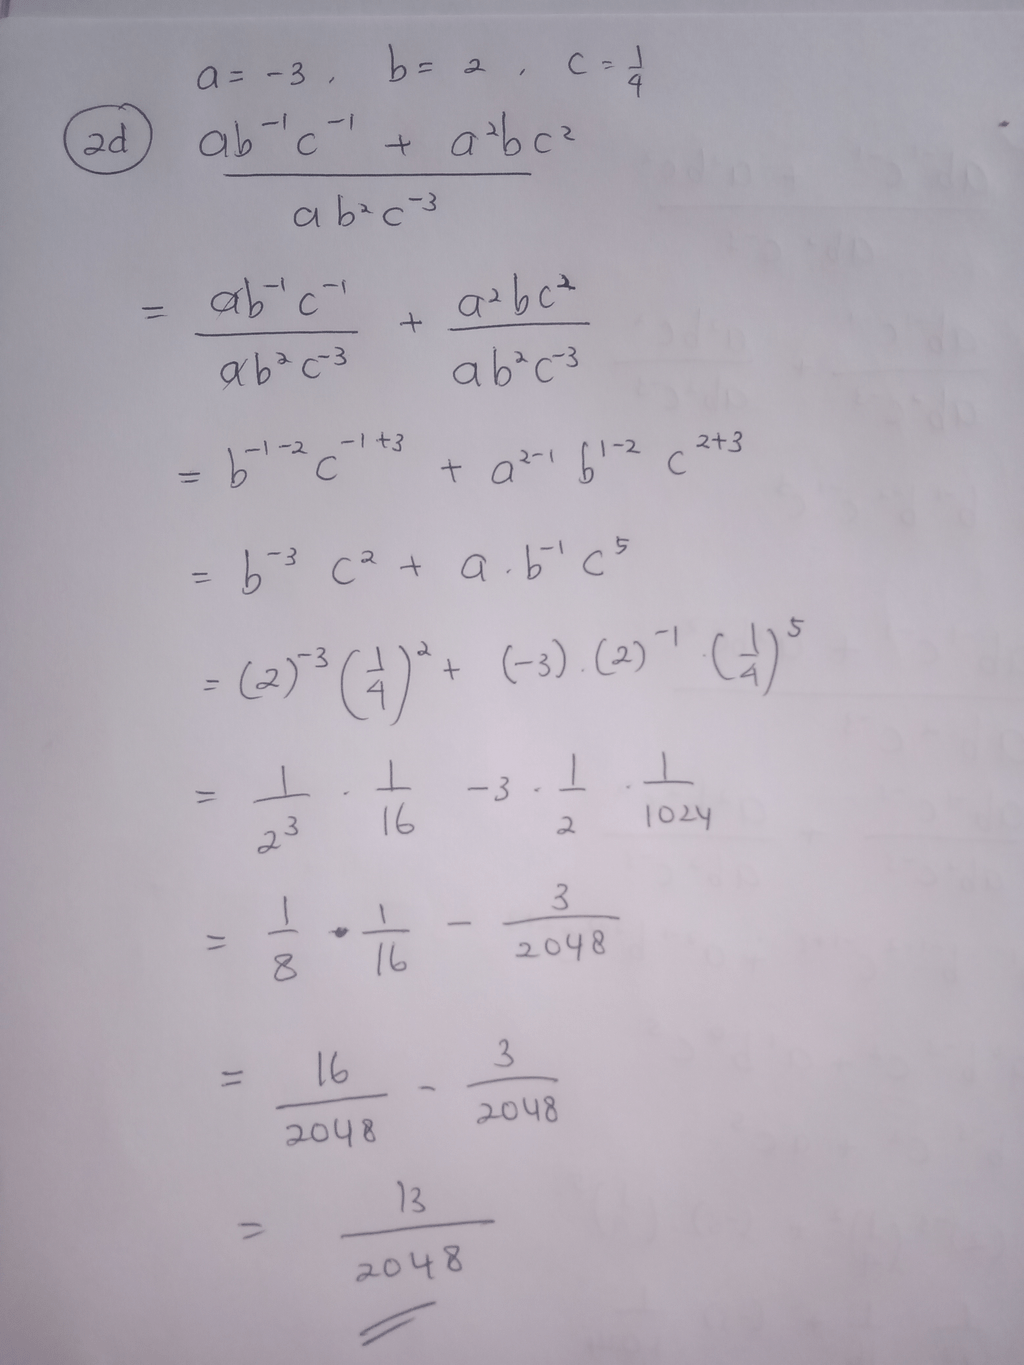 a = -3 , b = 2 , c = 1/4
2d ab⁻¹c⁻¹ + a²bc²
ab²c⁻³
= ab⁻¹c⁻¹/ab²c⁻³ + a²bc²/ab²c⁻³
= b⁻¹⁻²c⁻¹⁺³ + a²⁻¹ b¹⁻² c²⁺³
= b⁻³ c² + a . b⁻¹ c⁵
= (2)⁻³ (1/4)² + (-3) . (2)⁻¹ . (1/4)⁵
= 1/2³ . 1/16 -3 . 1/2 . 1/1024
= 1/8 . 1/16 - 3/2048
= 16/2048 - 3/2048
= 13/2048